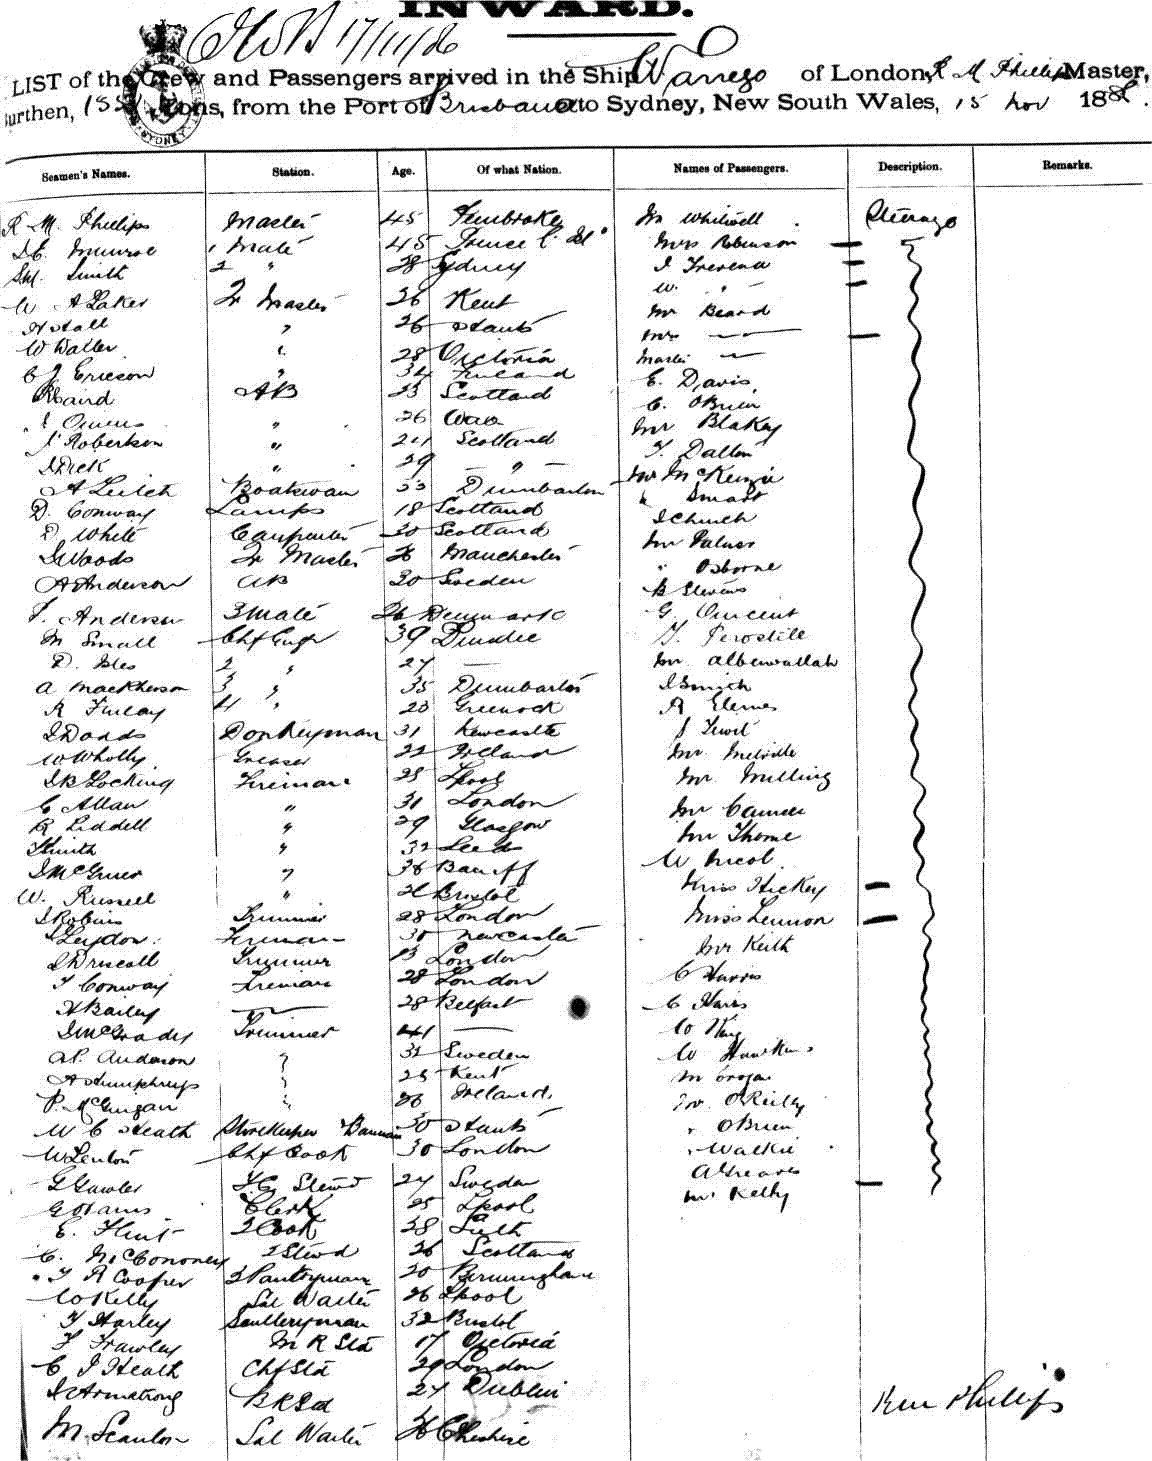 INWARD.
17/11/86
LIST of the Crew and Passengers arrived in the Ship Warrego of London, R M Phillips Master,
Burthen, Tons, from the Port of Brisbane to Sydney, New South Wales, 15 Nov 188
Seamen's Names. Station. Age. Of what Nation. Names of Passengers. Description. Remarks.
R M. Phillips Master 45 Pembroke Mr Whitwell Steerage
Munroe 1 Mate 45 Prince Mrs Robinson
Smith 2 " 28 Sydney J Trevena
W A Laker Qr Master 26 Kent W. " -
H Hall " 26 Hants Mr Beard
W Waller " 28 Victoria Mrs —
C J Ericson " 34 Finland Master —
Baird AB 23 Scotland E. Davis
J Owens " 26 C. OBrien
J Robertson " 24 Scotland Mr Blakey
J Dick " 29 — " — T. Dalton
A Leitch Boatswain 33 Dumbarton Mr McKenzie
D. Conway Lamps 18 Scotland " Smart
D. White Carpenter 30 Scotland J Church
J Woods Qr Master 26 Manchester Mr Palmer
A Anderson AB 30 Sweden " Osborne
J. Anderson 3 Mate 26 Denmark B Stevens
M Small Chf Engr 39 Dundee G. Vincent
D. Isles 2 " 27 —
A MacPherson 3 " 35 Dumbarton Mr
R Finlay 4 " 23 Greenock J Smith
J Dodds Donkeyman 31 Newcastle R Clemes
W Wholly Greaser 22 Ireland J
J B Hocking Fireman 25 Lpool Mr Melville
C Allan " 31 London Mr Milling
R Liddell " 29 Glasgow Mr
Smith " 32 Leeds Mr Thorne
J McGruer " 38 Banff W Nicol
W. Russell " Bristol Miss Hickey
J Robins Trimmer 28 London Miss Lennon
Leydon Fireman 30 Newcastle Mr Keith
J Driscoll Trimmer London C Harris
T Conway Fireman 28 London C Harris
H Bailey — 28 Belfast W King
J McGrady Trimmer 41 — W Hawkins
A.P. Anderson " 32 Sweden
A Humphreys " 25 Kent Mr O'Reilly
P. McGuigan " Ireland " OBrien
W C Heath Storekeeper 30 Hants " Walkie
W Lenton Chf Cook 30 London A Greaves
G Gawler Stewd 27 Sweden Mr Kelly
G Clerk 25 Lpool
E. Flint 2 Cook 38 Leith
C. McCononey 2 Stewd 26 Scotland
T R Cooper Pantryman 20 Birmingham
W Kelly Sal Waiter 26 Lpool
T Harley Sculleryman 32 Bristol
T Frawley M R Std 17 Victoria
C J Heath Chf Std 29 London
J Armstrong BR Std 27 Dublin
M Scanlon Sal Waiter 36 Cheshire
Phillips